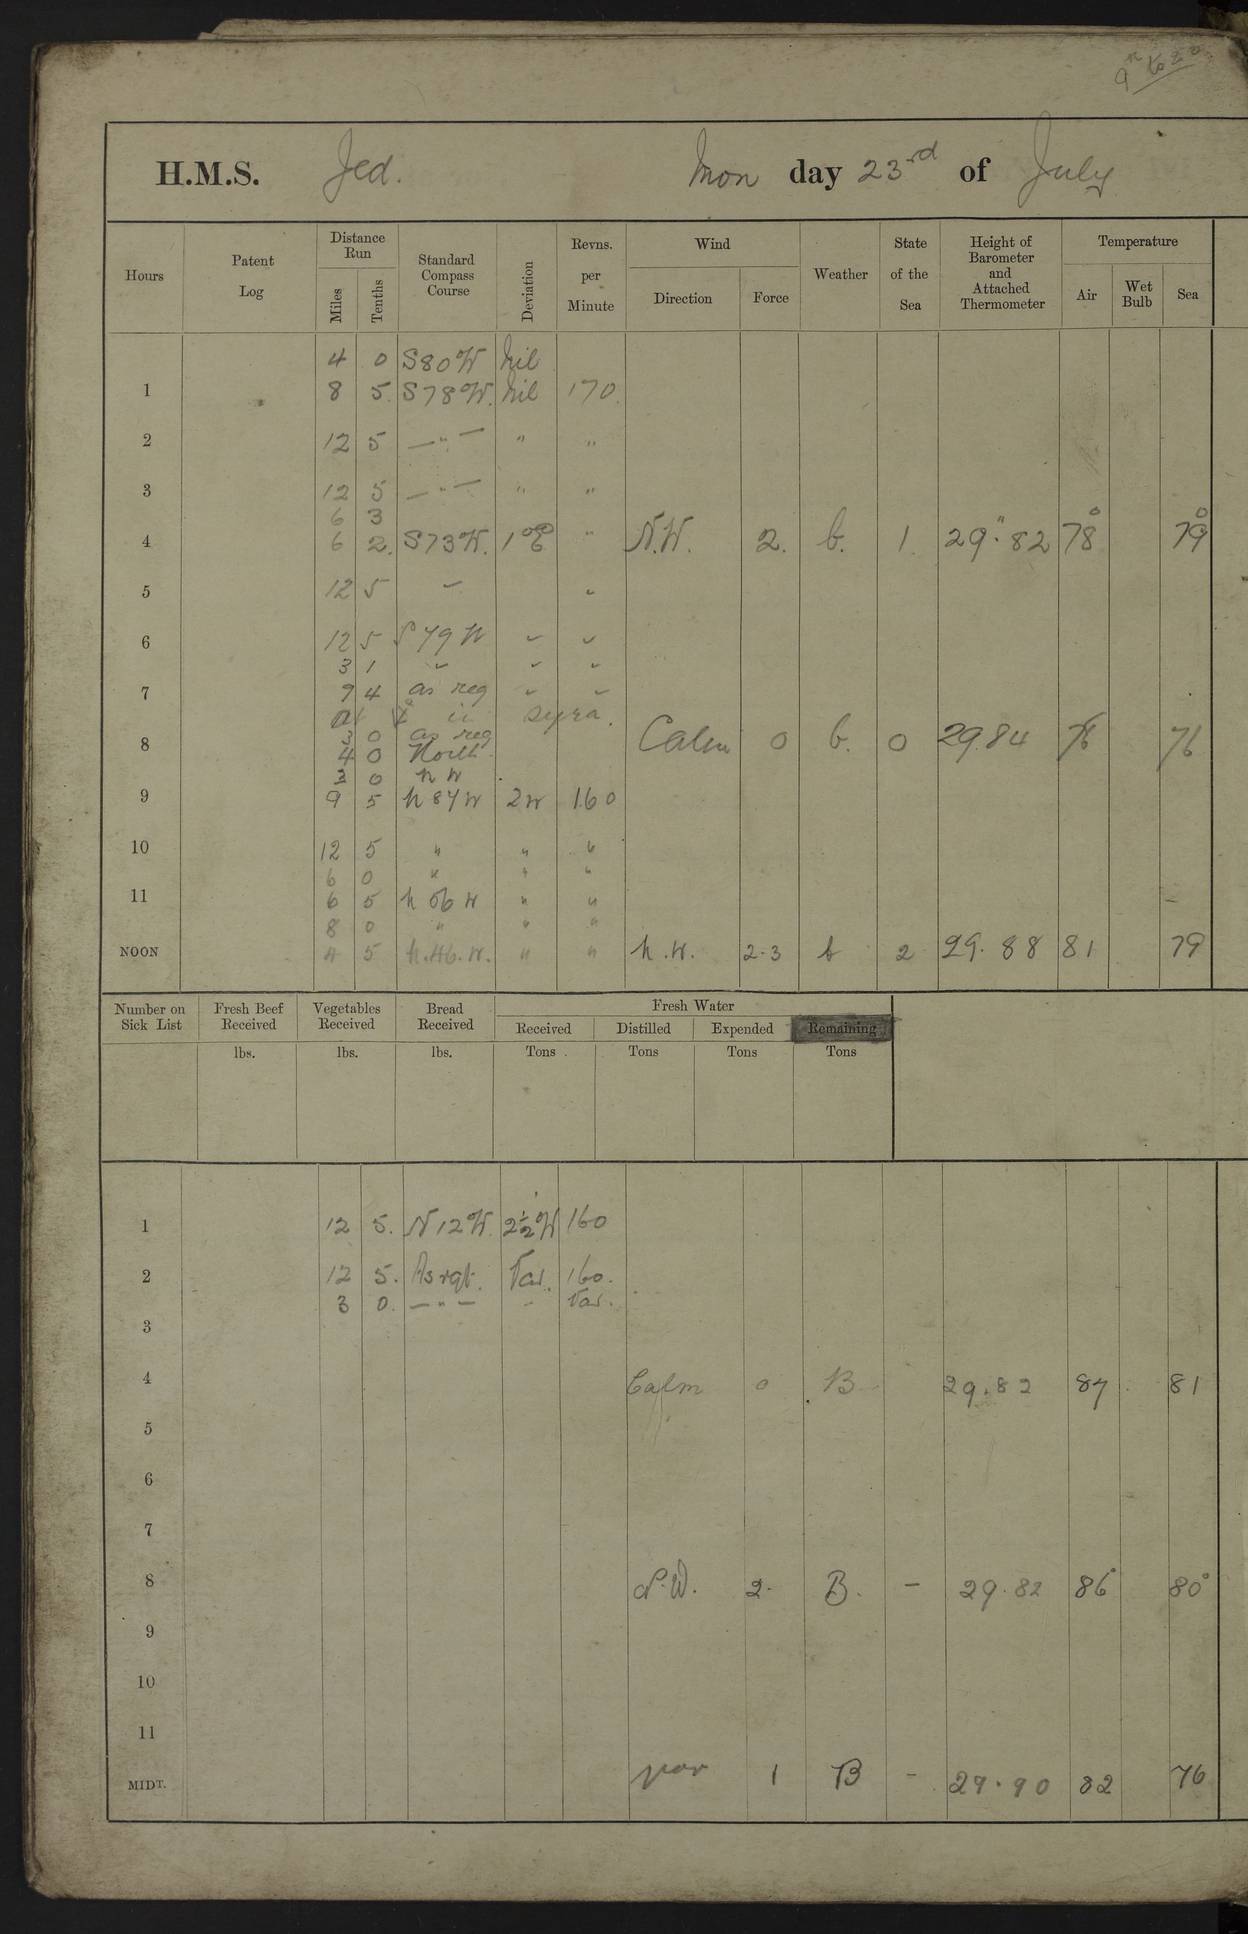 9 to 20
H.M.S. Jed. Mon day 23rd of July
Hours Patent Log Distance Run Miles Tenths Standard Compass Course Deviation Revns. per Minute Wind Direction Force Weather State of the Sea Height of Barometer and Attached Thermometer Temperature Air Wet Bulb Sea
4 0 S80W Nil
1 8 5. S78W. Nil 170.
2 12 5 —"— " "
3 12 5 —"— " "
6 3
4 6 2. S73W. 1°E " N.W. 2. b. 1. 29."82 78° 79°
5 12 5 " "
6 12 5 S79W " "
3 1 " " "
7 9 4 as req " "
at Syra.
8 3 0 as req Calm 0 b. 0 29.84 76 76
4 0 North
3 0 N W
9 9 5 N 87 W 2W 160
10 12 5 " " "
6 0 " " "
11 6 5 N 56 W " "
8 0 " " "
NOON 4 5 N.46.W. " " N.W. 2.3 b 2 29.88 81 79
Number on Sick List Fresh Beef Received Vegetables Received Bread Received Fresh Water
Received Distilled Expended Remaining
lbs. lbs. lbs. Tons Tons Tons Tons
1 12 5. N12W. 2½W 160
2 12 5. As rqt. Var. 160.
3 0. —"— " Var.
3
4 Calm 0 B 29.82 87 81
5
6
7
8 N.W. 2. B. – 29.82 86° 80°
9
10
11
MIDT. var 1 B – 29.90 82 76